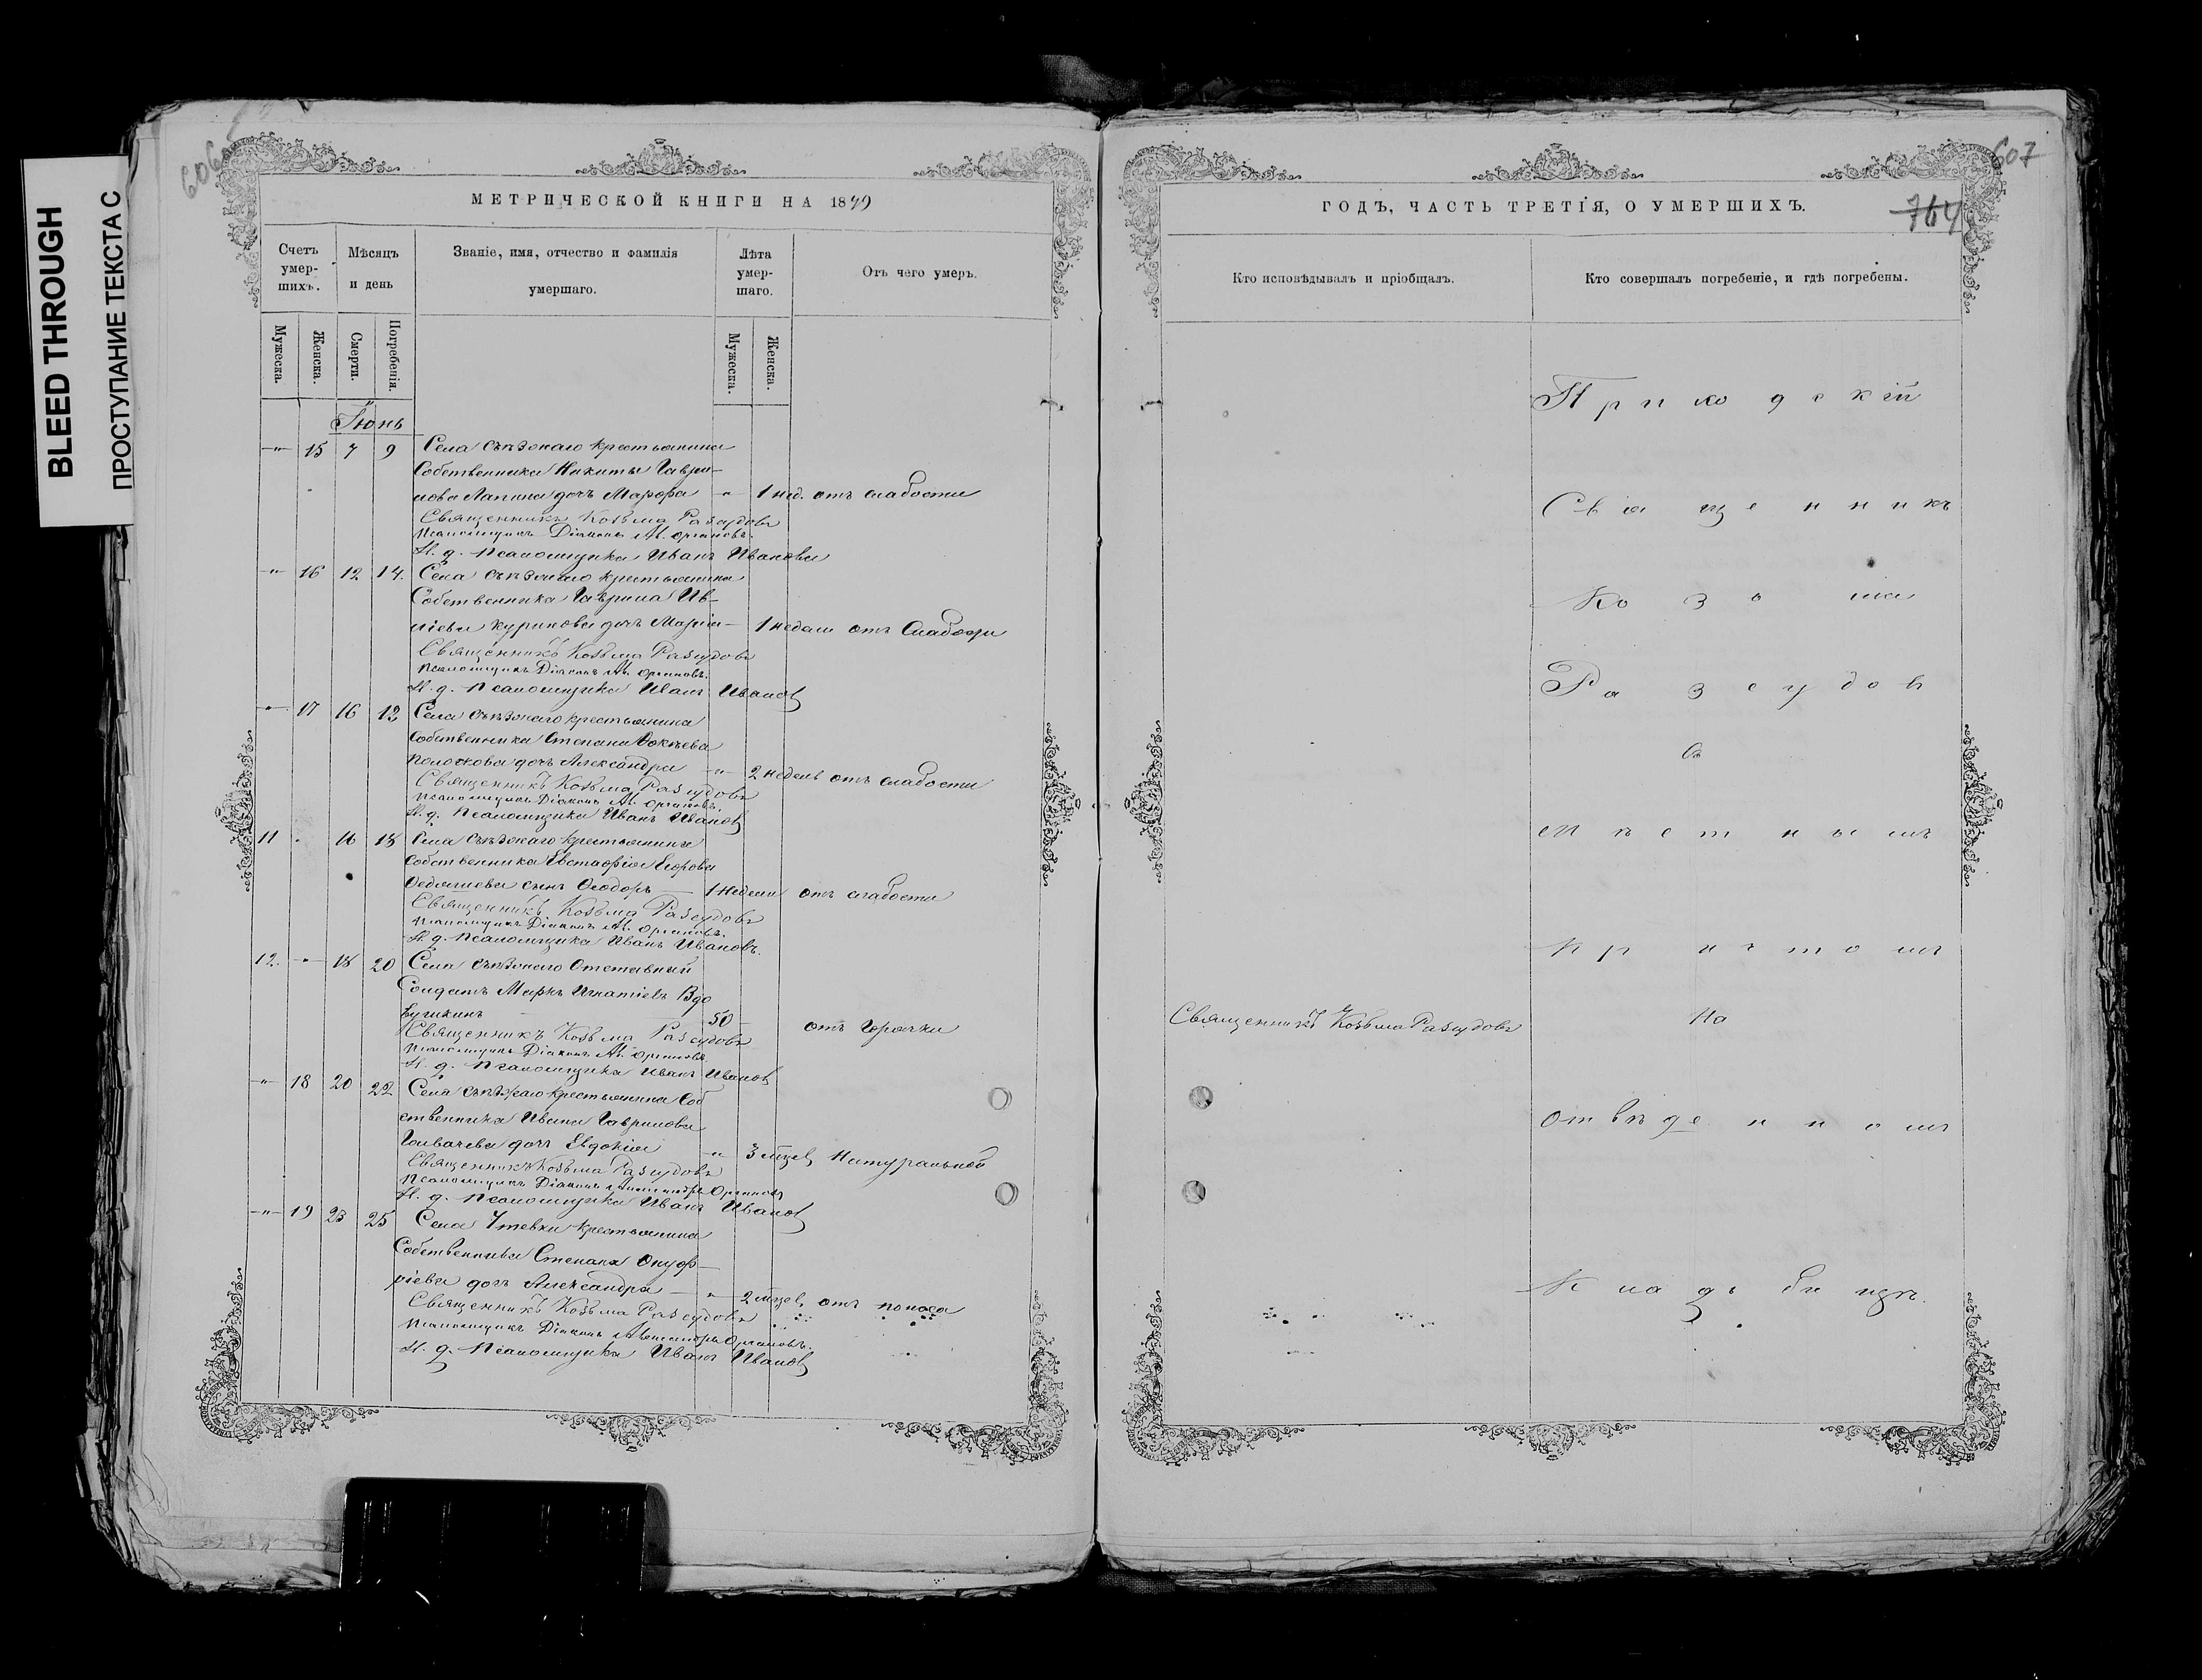 BLEED THROUGH
ПРОСТУПАНИЕ ТЕКСТА С
606
МЕТРИЧЕСКОЙ КНИГИ НА 1879
Счетъ умер-шихъ.
Мѣсяцъ и день
Званіе, имя, отчество и фамилія умершаго.
Лѣта умер-шаго.
Отъ чего умеръ.
Мужеска.
Женска.
Смерти.
Погребенія.
Мужеска.
Женска.
Іюнь
-"- 15 7 9 Села Съѣзжаго крестьянина
Собственника Никиты Гаври-
лова Лапина дочь Марфа -"- 1 нед. отъ слабости
Священникъ Козьма Разсудовъ
Псаломщикъ Діаконъ Ал. Органовъ.
И. д. Псаломщика Иванъ Ивановъ
-"- 16 12 14. Села Съѣзжаго крестьянина
Собственника Гаврила
дочь Марія - 1 недели отъ Слабости
Священникъ Козьма Разсудовъ
Псаломщикъ Діаконъ Ал. Органовъ.
И. д. Псаломщика Иванъ Ивановъ
-"- 17 16 Села Съѣзжаго крестьянина
Собственника Степана Фокѣева
дочь Александра -"- 2 недель отъ слабости
Священникъ Козьма Разсудовъ
Псаломщикъ Діаконъ Ал. Органовъ.
И. д. Псаломщика Иванъ Ивановъ
11 - 16 18 Села Съѣзжаго крестьянина
Собственника Евстафія Егорова
сынъ Ѳеодоръ - 1 недели отъ слабости
Священникъ Козьма Разсудовъ
Псаломщикъ Діаконъ Ал. Органовъ.
И. д. Псаломщика Иванъ Ивановъ.
12. -"- 18 20 Села Съѣзжаго Отставный
Солдатъ Маркъ Игнатіевъ Вдо
вушкинъ 50 отъ Горячки
Священникъ Козьма Разсудовъ
Псаломщикъ Діаконъ Ал. Органовъ
И. д. Псаломщика Иванъ Ивановъ
-"- 18 20 22 Села Съѣзжаго крестьянина Соб
ственника Ивана Гаврилова
дочь Евдокія -"- 3 мцев Натуральной
Священникъ Козьма Разсудовъ
Псаломщикъ Діаконъ Александръ Органовъ
И. д. Псаломщика Иванъ Ивановъ
-"- 19 23 25 Села Утевки крестьянина
Собственника Степана Онуф-
ріева дочь Александра -"- 2 мцев, отъ поноса
Священникъ Козьма Разсудовъ
Псаломщикъ Діаконъ Александръ Органовъ.
И. д. Псаломщика Иванъ Ивановъ
607
764
ГОДЪ, ЧАСТЬ ТРЕТІЯ, О УМЕРШИХЪ.
Кто исповѣдывалъ и пріобщалъ.
Кто совершалъ погребеніе, и гдѣ погребены.
Приходскій
Священникъ
Козьма
Разсудов
съ
Причтомъ
Священникъ Козьма Разсудовъ
На
отвѣденномъ
Кладьбищѣ.